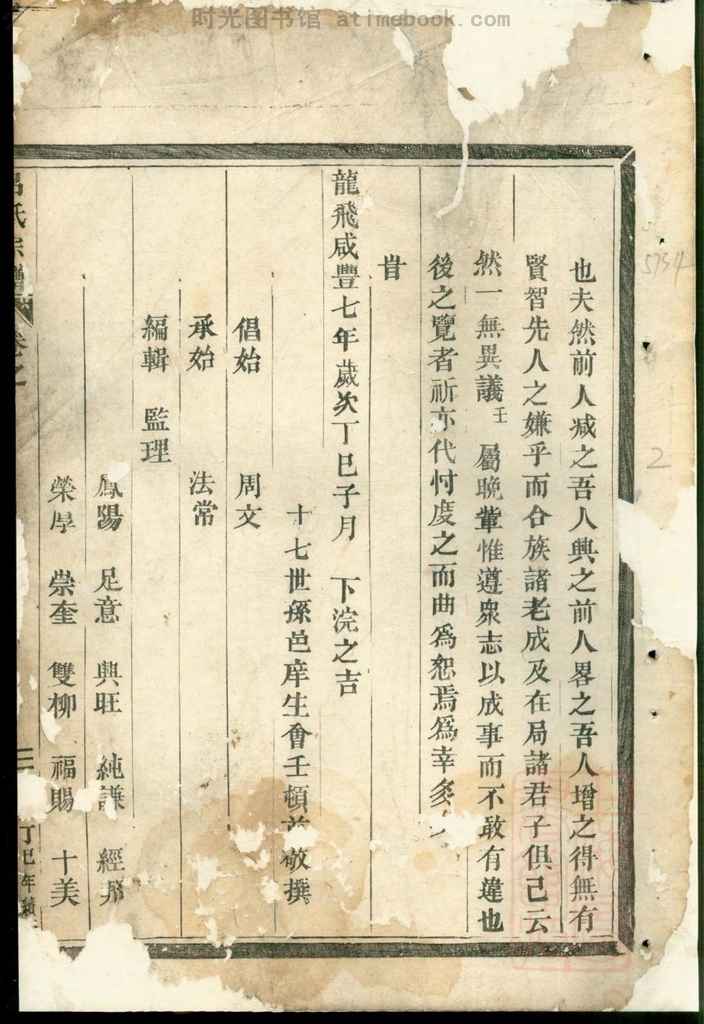 时光图书馆 atimebook.com
也夫然前人减之吾人興之前人畧之吾人增之得無有
賢智先人之嫌乎而合族諸老成及在局諸君子俱已云
然一無異議壬屬晚輩惟遵衆志以成事而不敢有違也
後之覽者祈亦代忖度之而曲爲恕焉爲幸多
旹
龍飛咸豐七年歲次丁巳子月 下浣之吉
十七世孫邑庠生會壬頓首敬撰
倡始 周文
承始 法常
編輯 監理
鳳陽 足意 興旺 純謙 經邦
榮厚 崇奎 雙柳 福賜 十美
氏宗譜 卷之 二 丁巳年
5754
2